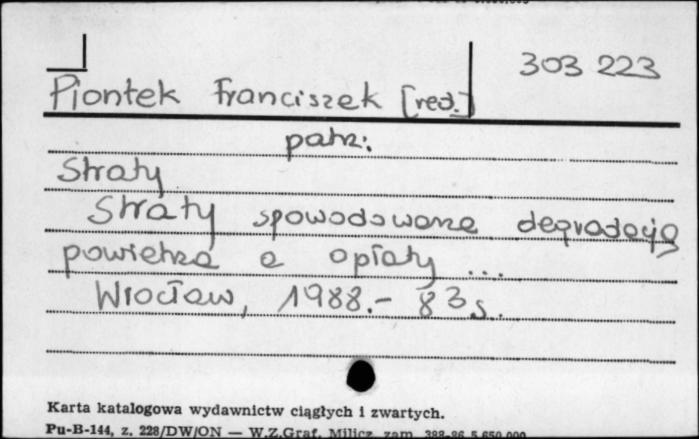 303 223
Piontek Franciszek [red.]
patrz:
Straty
Straty spowodowane degradacją
powietrza a opłaty ...
Wrocław, 1988.- 83 s.
Karta katalogowa wydawnictw ciągłych i zwartych.
Pu-B-144, z. 228/DW/ON — W.Z.Graf. Milicz zam. 388-86 5.650.000